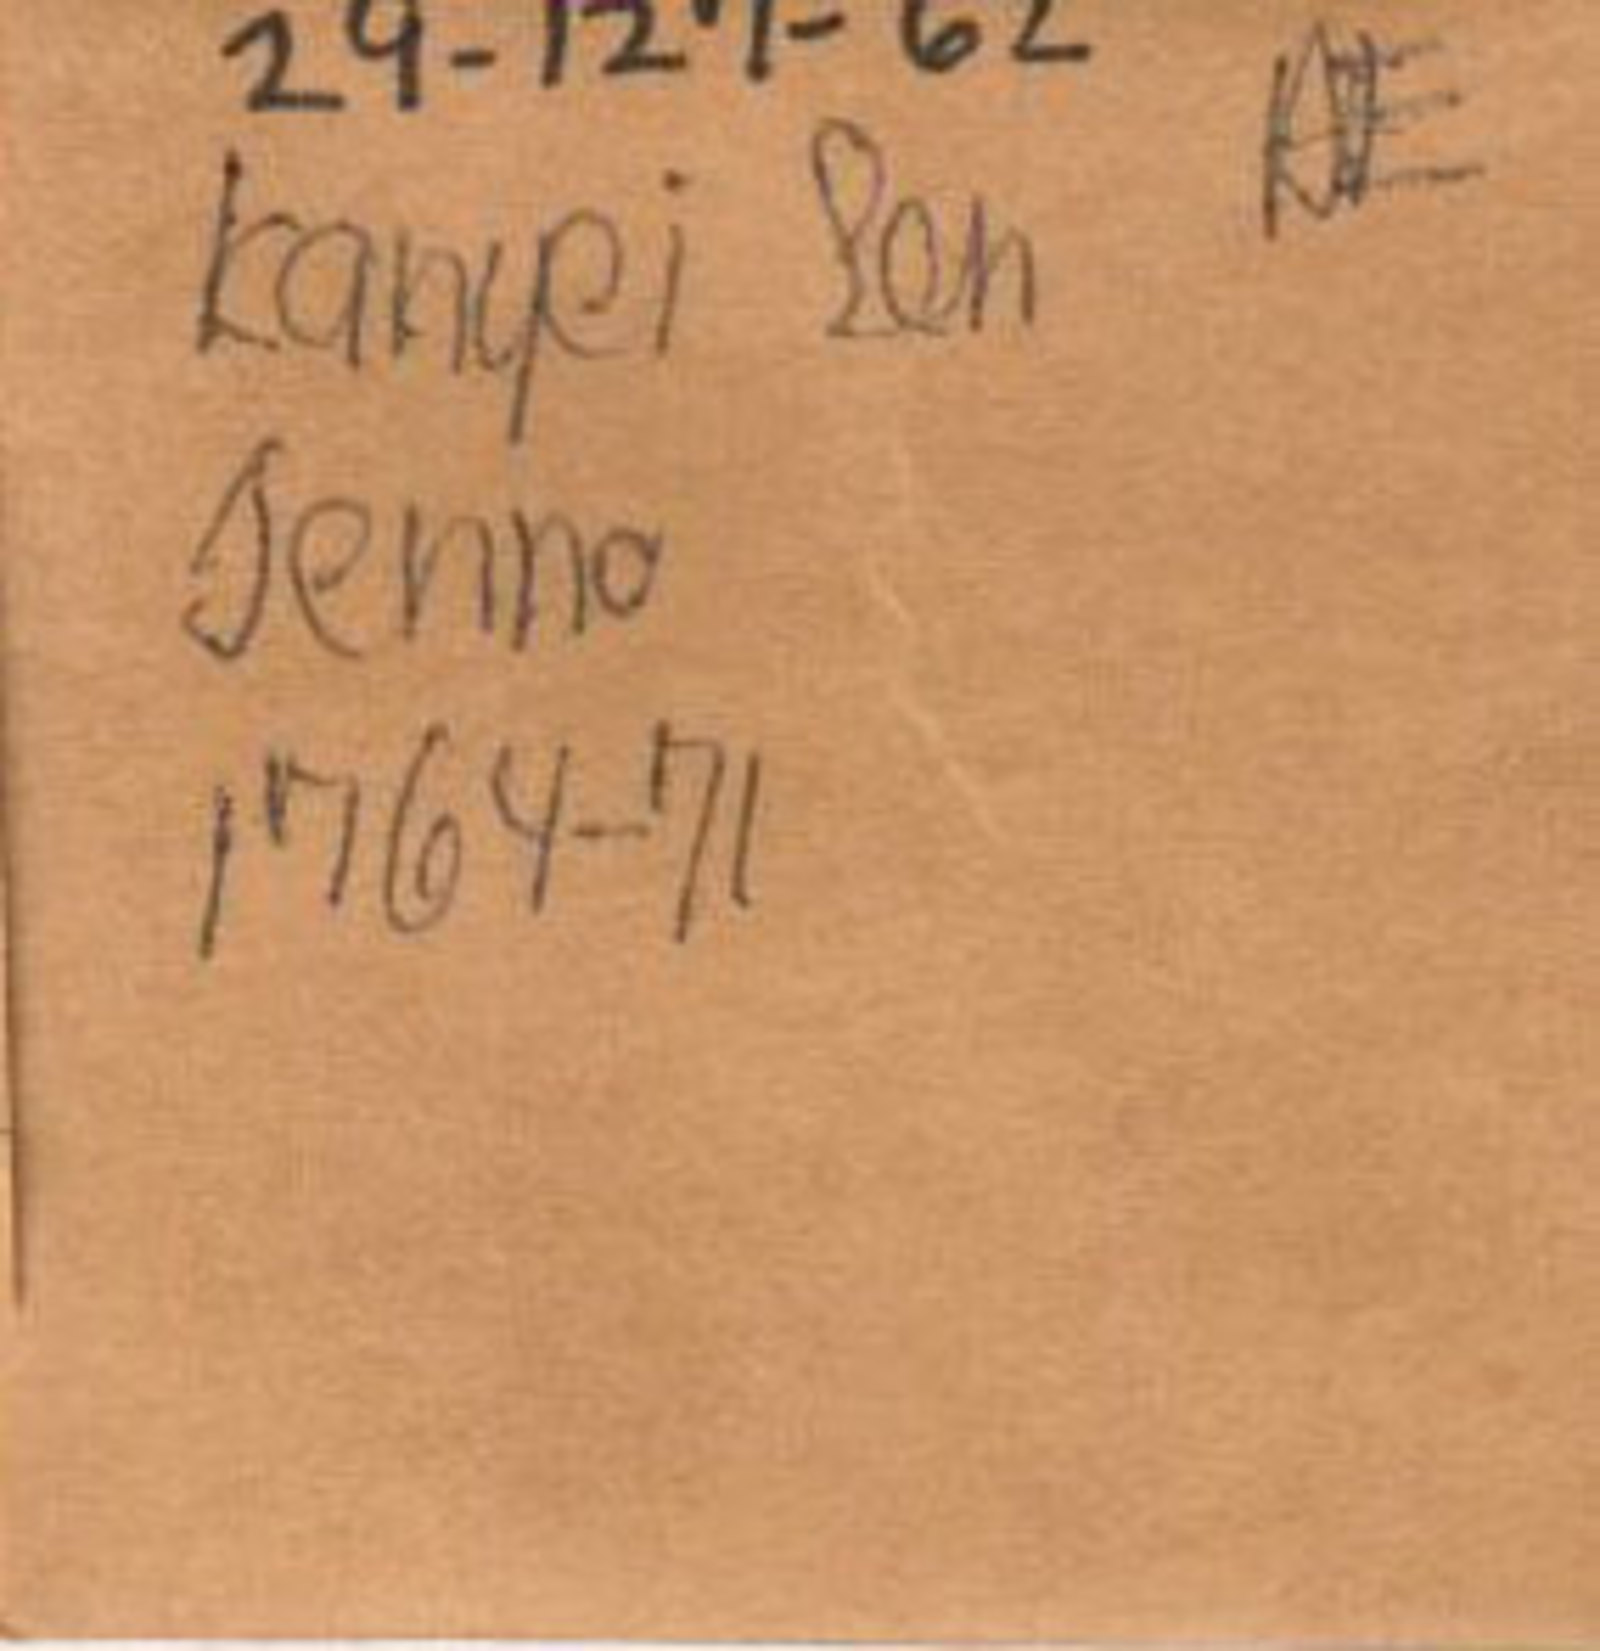 29-127-62
Kanyei Sen
Jenno
1764-71